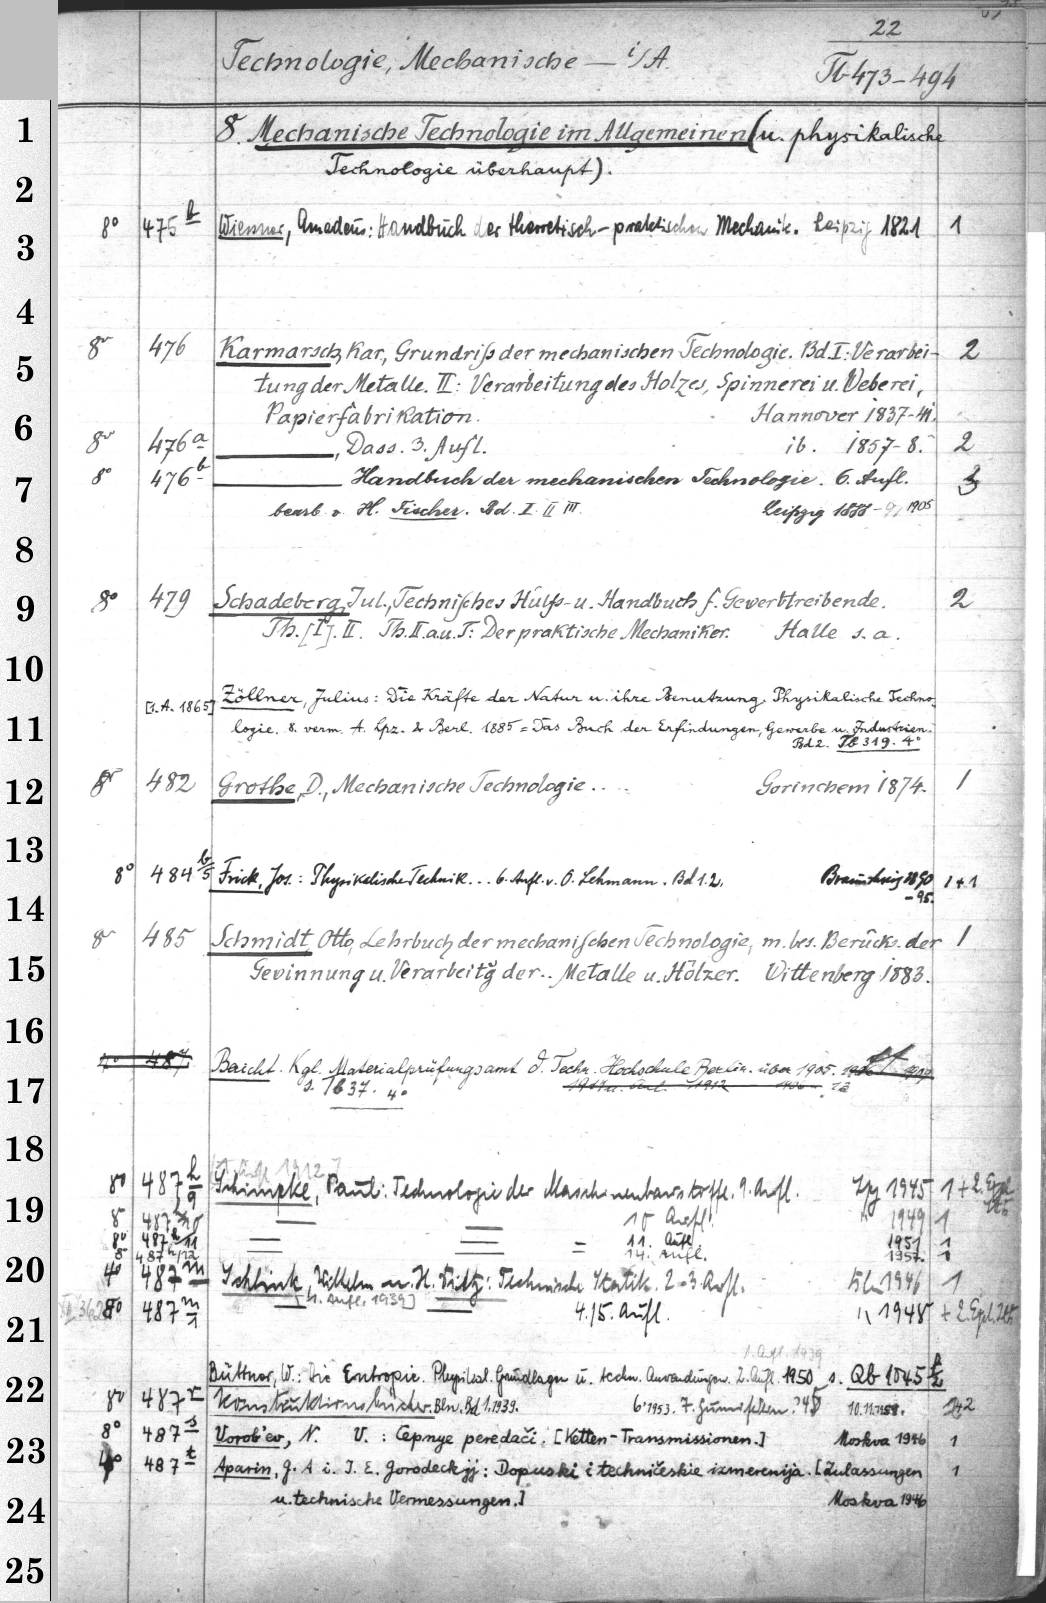 22
Technologie, Mechanische — i/A.
Tb 473–494
1
8. Mechanische Technologie im Allgemeinen (u. physikalische
2
Technologie überhaupt).
3
8° 475 b Wiessner, Amadeus: Handbuch der theoretisch-praktischen Mechanik. Leipzig 1821 1
4
8° 476 Karmarsch, Kar, Grundriſs der mechanischen Technologie. Bd. I: Verarbei- 2
5
tung der Metalle. II: Verarbeitung des Holzes, Spinnerei u. Weberei,
Papierfabrikation. Hannover 1837-41.
6
8° 476 a ———, Dass. 3. Aufl. ib. 1857-8. 2
7
8° 476 b ——— Handbuch der mechanischen Technologie. 6. Aufl. 3
bearb. v. H. Fischer. Bd. I II III Leipzig 1888- 1905
8
9
8° 479 Schadeberg, Jul., Techniſches Hülfs- u. Handbuch f. Gewerbtreibende. 2
Th. [I]. II. Th. II. a. u. T: Der praktische Mechaniker. Halle s. a.
10
[s. A. 1865] Zöllner, Julius: Die Kräfte der Natur u. ihre Benutzung. Physikalische Techno-
11
logie. 8. verm. A. Lpz. & Berl. 1885 = Das Buch der Erfindungen, Gewerbe u. Industrien.
Bd 2. Tb 319. 4°
12
8° 482 Grothe, D., Mechanische Technologie.... Gorinchem 1874. 1
13
8° 484 b/5 Frick, Jos.: Physikalische Technik... 6. Aufl. v. O. Lehmann. Bd 1.2. Braunschweig 1890 1+1
-95.
14
8° 485 Schmidt, Otto, Lehrbuch der mechaniſchen Technologie, m. bes. Berücks. der 1
15
Gewinnung u. Verarbeitg der.. Metalle u. Hölzer. Wittenberg 1883.
16
487 Bericht. Kgl. Materialprüfungsamt d. Techn. Hochschule Berlin. über 1905.
17
s. Tb 37. 4°
18
8° 487 h/9 Schimpke, Paul: Technologie der Maschinenbaustoffe. 9. Aufl. Lpz 1945 1 + 2. Expl
19
8° 487 h/10 — — 10 Aufl. " 1949 1
8° 487 h/11 — — = 11. Aufl 1951 1
8° 487 h/12 — — 14. Aufl. 1957. 1
20
4° 487 m Schlink, Wilhelm u. H. Dietz: Technische Statik. 2-3 Aufl. Bln 1946 1
[4. Aufl. 1939]
8° 487 m/1 — — 4./5. Aufl. " 1948 + 2 Expl.
21
1. Aufl. 1939
Büttner, W.: Die Entropie. Physikal. Grundlagen u. techn. Anwendungen. 2. Aufl. 1950 s. Qb 1045
22
8° 487 r Konstruktionsbücher. Bln. Bd 1. 1939. 6. 1953. 7. Gummifedern. 2
23
8° 487 s Vorob'ev, N. V.: Cepnye peredači. [Ketten-Transmissionen.] Moskva 1946 1
4° 487 t Aparin, G. A i. I. E. Gorodeckij: Dopuski i techničeskie izmerenija. [Zulassungen 1
24
u. technische Vermessungen.] Moskva 1946
25